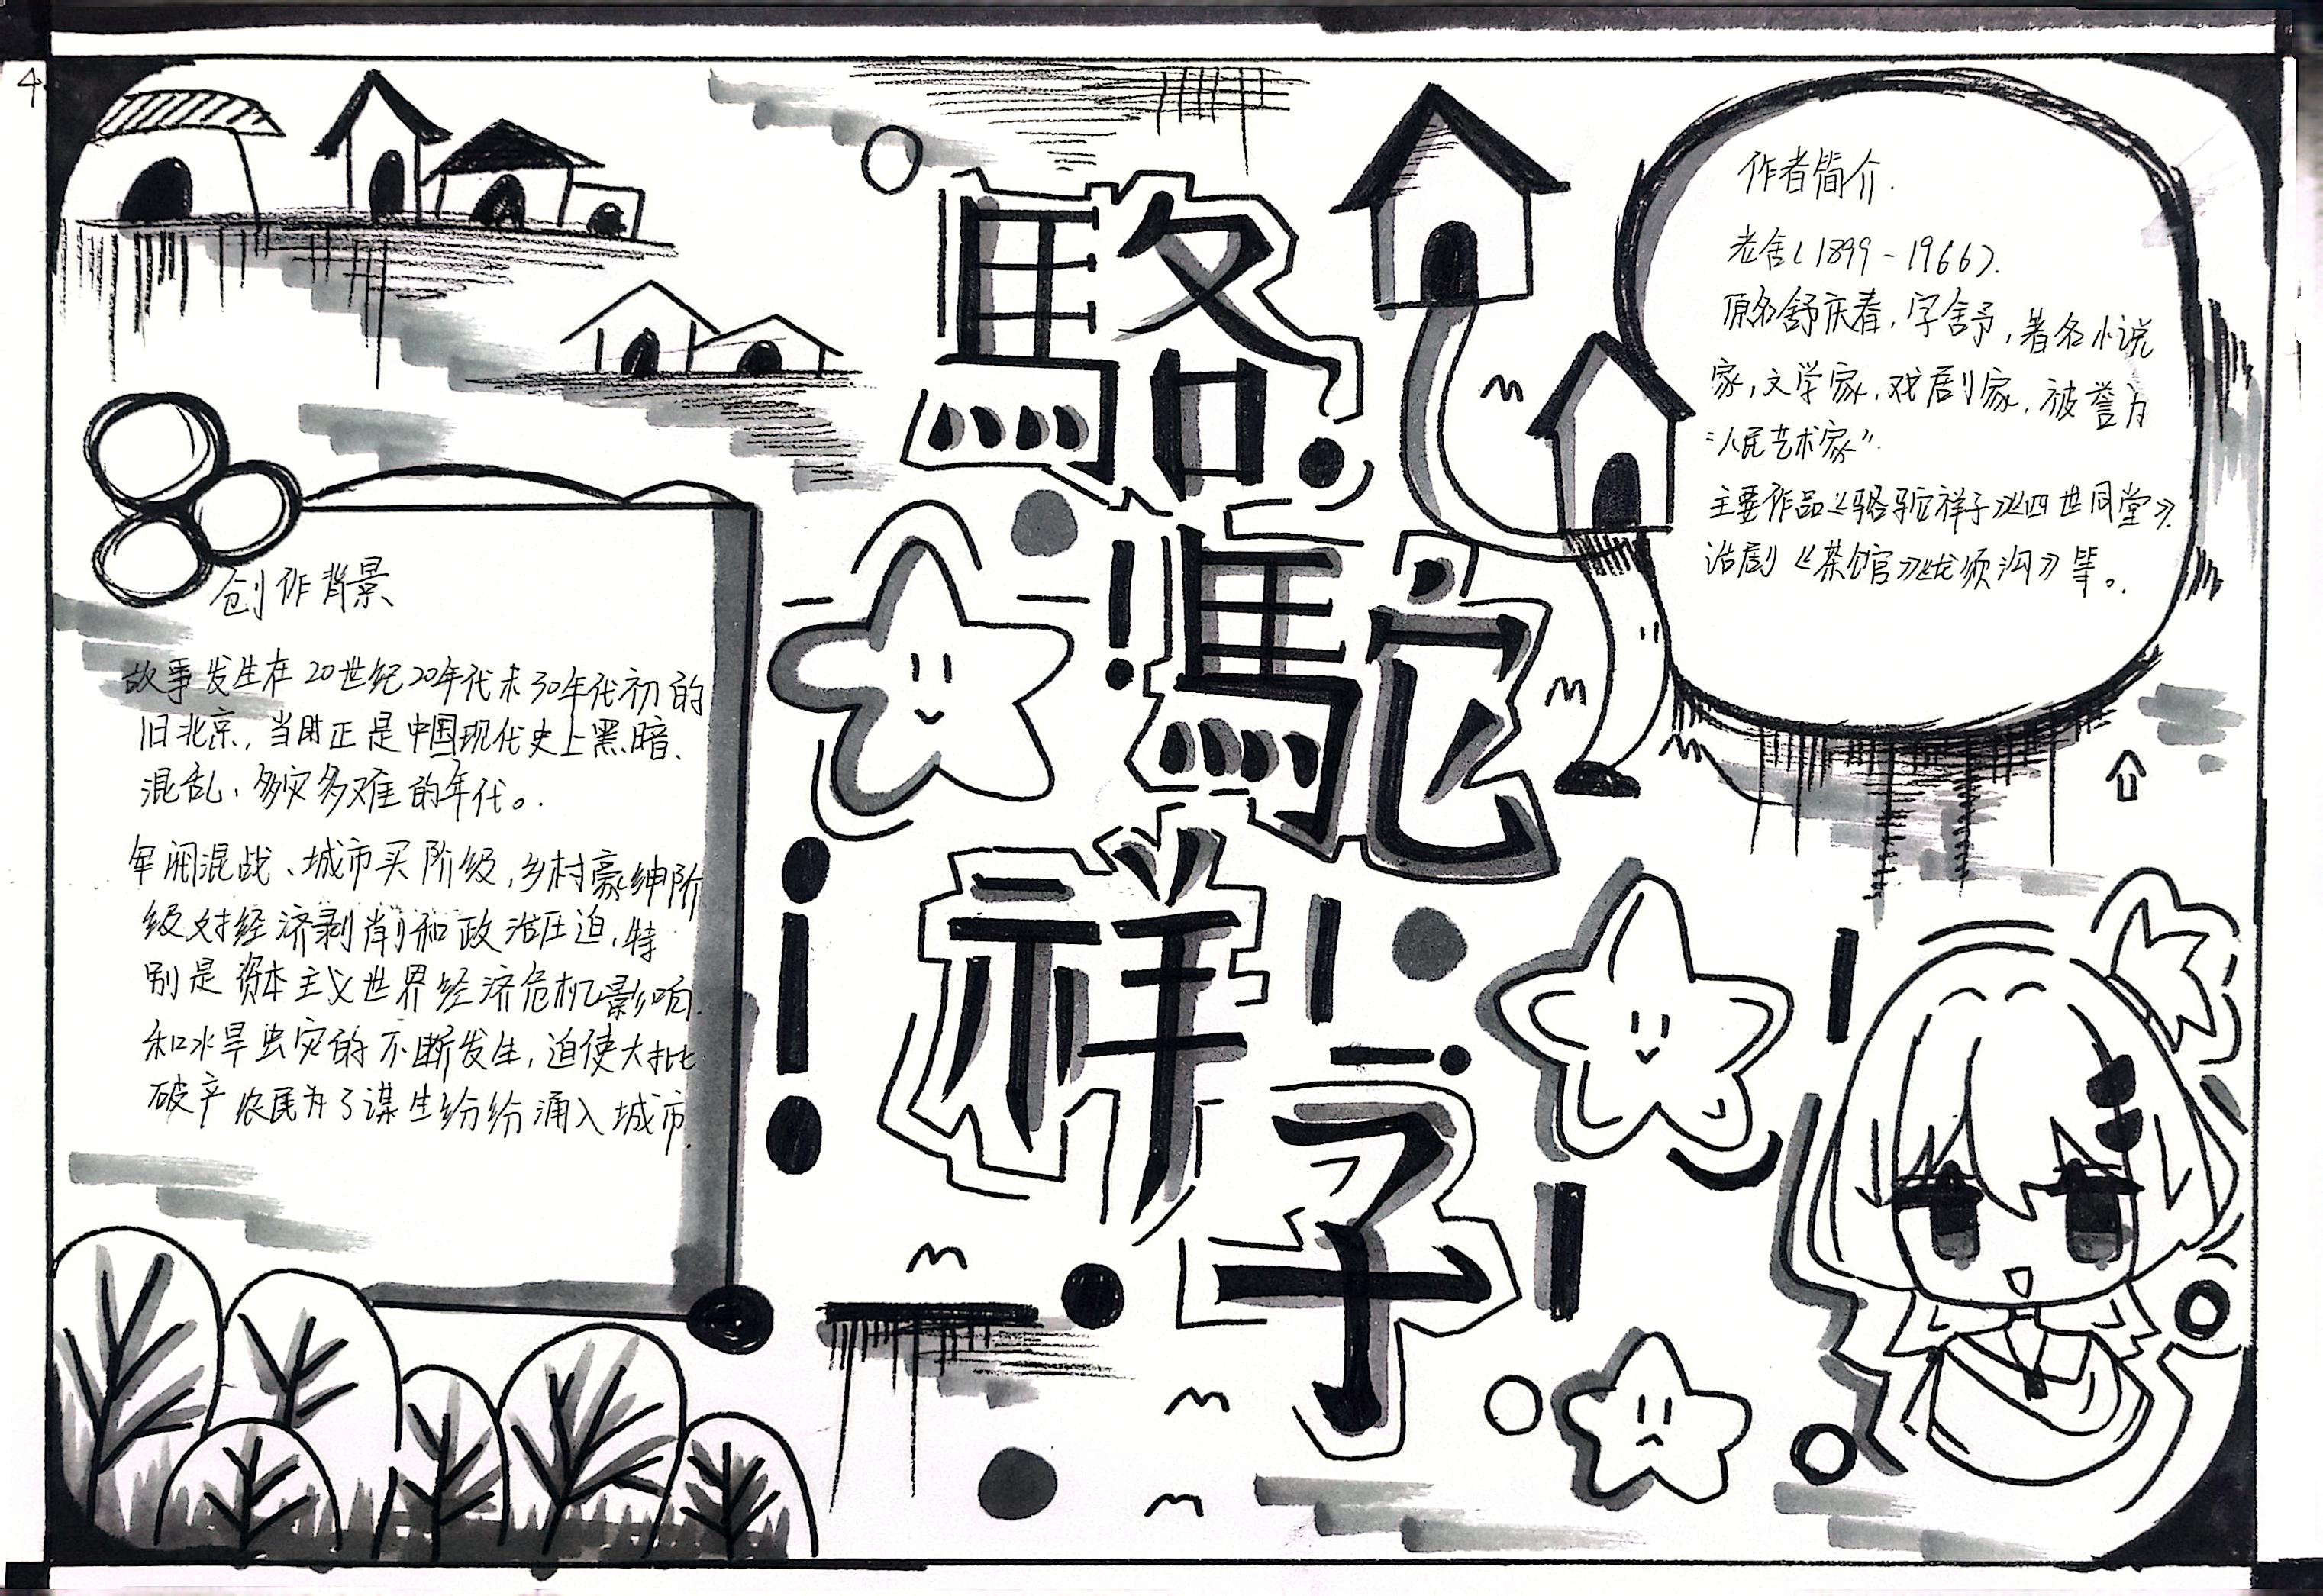 4
駱
駝
祥
子
作者简介.
老舍(1899-1966).
原名舒庆春,字舍予,著名小说
家,文学家,戏剧家,被誉为
“人民艺术家”.
主要作品《骆驼祥子》《四世同堂》.
话剧《茶馆》《龙须沟》等。.
创作背景
故事发生在20世纪20年代末30年代初的
旧北京,当时正是中国现代史上黑暗、
混乱、多灾多难的年代。.
军阀混战、城市买阶级,乡村豪绅阶
级对经济剥削和政治压迫,特
别是资本主义世界经济危机影响.
和水旱虫灾的不断发生,迫使大批
破产农民为了谋生纷纷涌入城市.